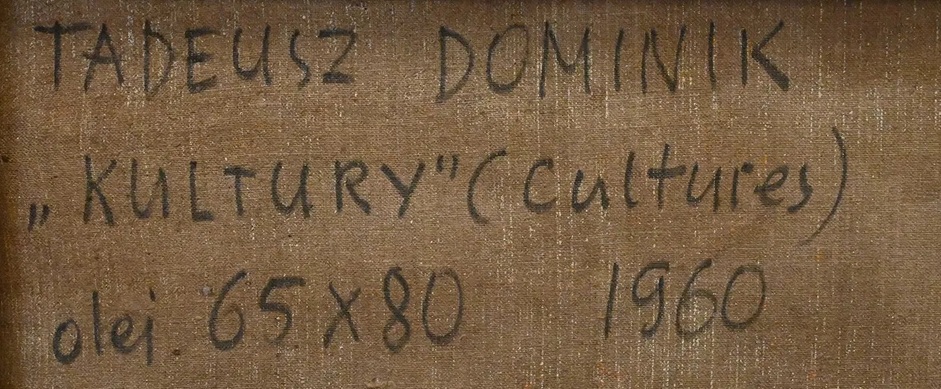 TADEUSZ DOMINIK
„KULTURY" (Cultures)
olej 65 x 80 1960